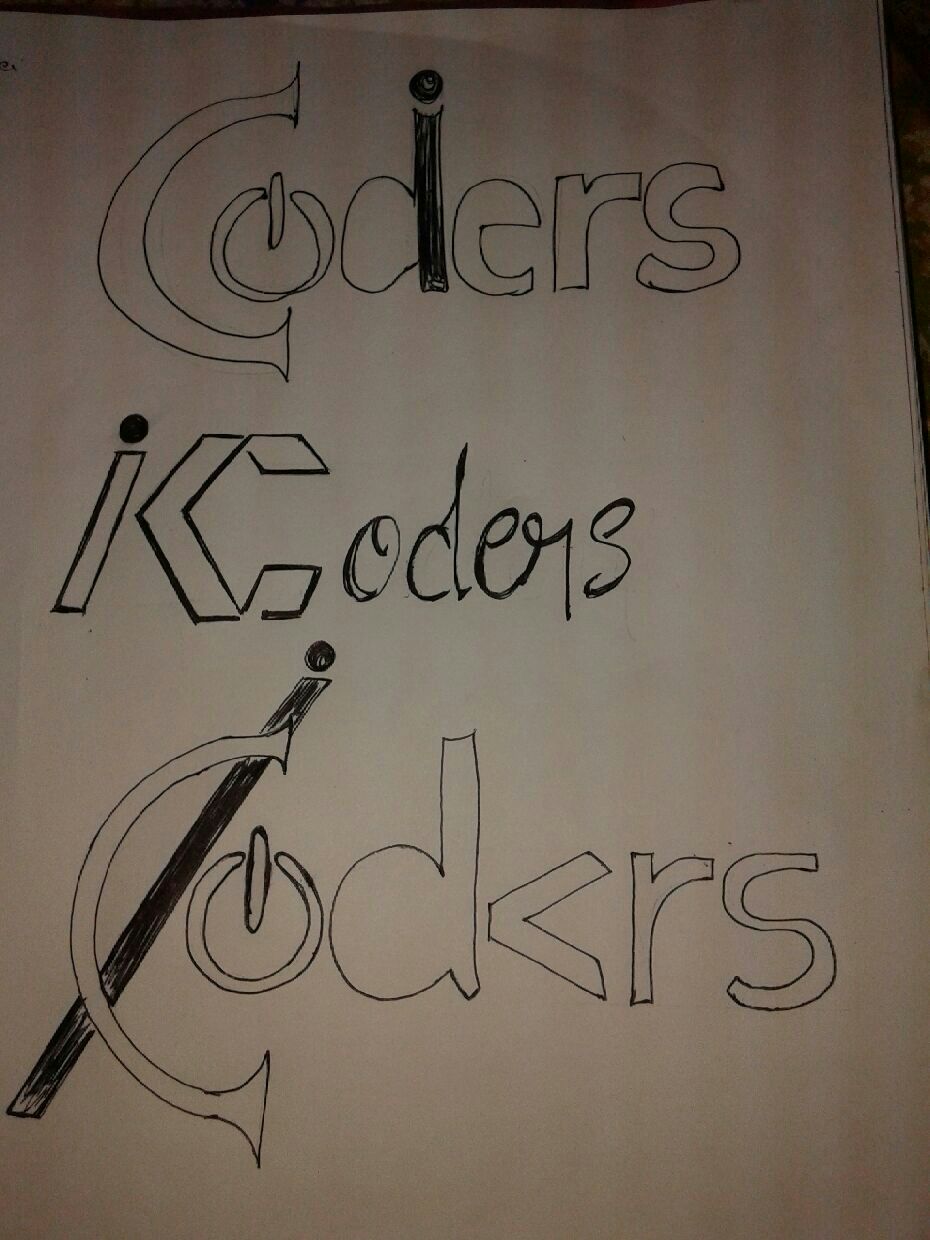 Coders
iCoders
iCod<rs